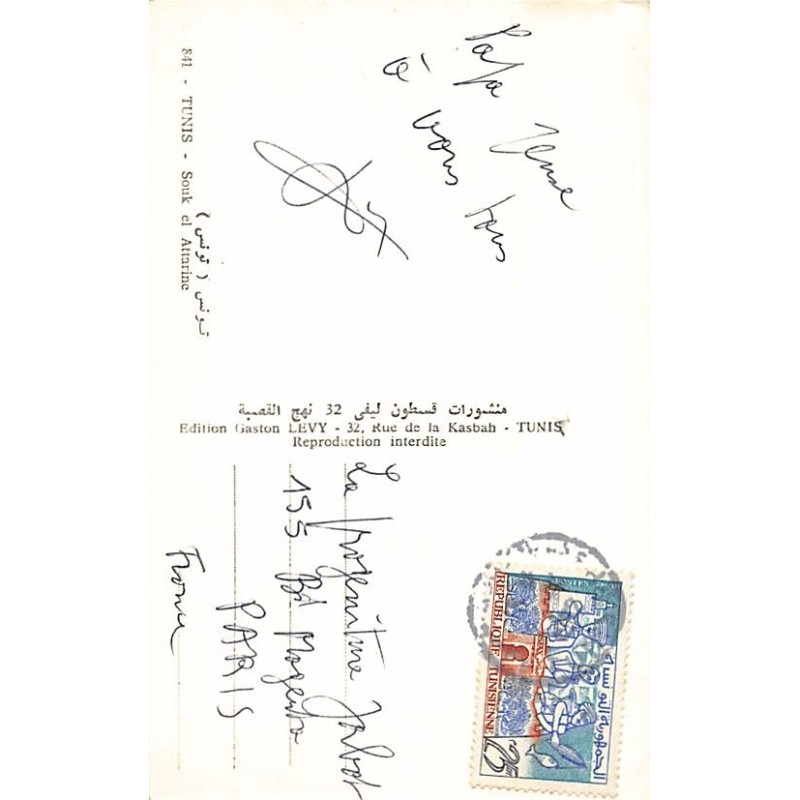 Papa pense
à vous tous
841 - TUNIS - Souk el Attarine
تونس ( تونس )
منشورات قسطون ليفى 32 نهج القصبة
Edition Gaston LEVY - 32, Rue de la Kasbah - TUNIS
Reproduction interdite
La progéniture Jabot
155 Bd Magenta
PARIS
France
REPUBLIQUE TUNISIENNE
الجمهورية التونسية
25